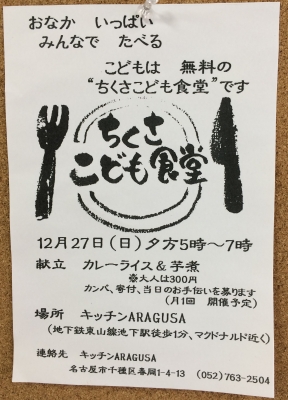 おなか いっぱい
みんなで たべる
こどもは 無料の
“ちくさこども食堂”です
ちくさ
こども食堂
12月27日(日)夕方5時～7時
献立 カレーライス＆芋煮
※大人は300円
カンパ、寄付、当日のお手伝いを募ります
(月1回 開催予定)
場所 キッチンARAGUSA
(地下鉄東山線池下駅徒歩1分、マクドナルド近く)
連絡先 キッチンARAGUSA
名古屋市千種区春岡1-4-13 (052)763-2504